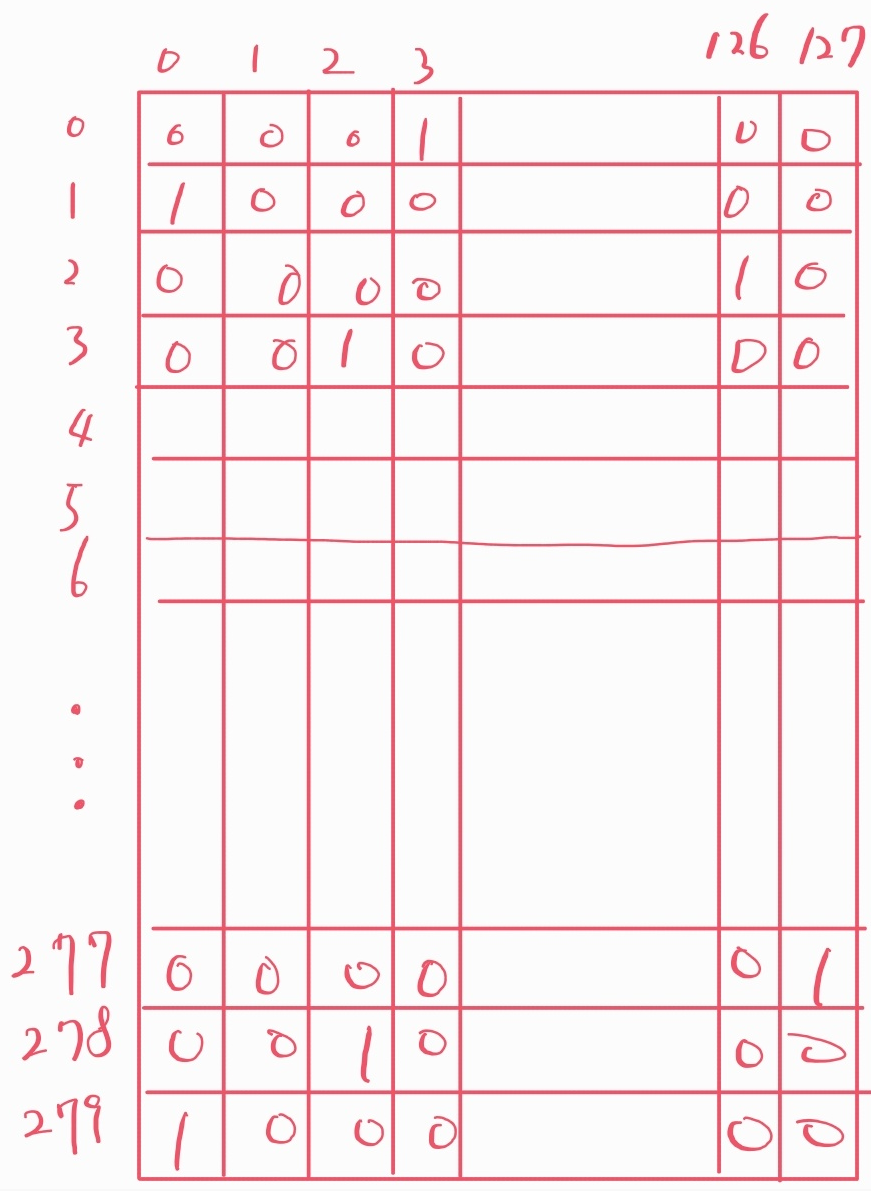 0 1 2 3 126 127
0 0 0 0 1 0 0
1 1 0 0 0 0 0
2 0 0 0 0 1 0
3 0 0 1 0 0 0
4
5
6
277 0 0 0 0 0 1
278 0 0 1 0 0 0
279 1 0 0 0 0 0